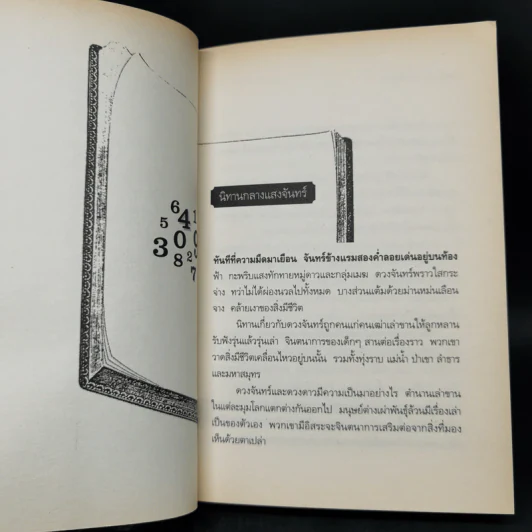 6
5 41
300
820
7
นิทานกลางแสงจันทร์
ทันทีที่ความมืดมาเยือน จันทร์ข้างแรมสองค่ำลอยเด่นอยู่บนท้อง
ฟ้า กะพริบแสงทักทายหมู่ดาวและกลุ่มเมฆ ดวงจันทร์พราวใสกระ
จ่าง ทว่าไม่ได้ผ่องนวลไปทั้งหมด บางส่วนแต้มด้วยม่านหม่นเลือน
จาง คล้ายเงาของสิ่งมีชีวิต
นิทานเกี่ยวกับดวงจันทร์ถูกคนแก่คนเฒ่าเล่าขานให้ลูกหลาน
รับฟังรุ่นแล้วรุ่นเล่า จินตนาการของเด็กๆ สานต่อเรื่องราว พวกเขา
วาดสิ่งมีชีวิตเคลื่อนไหวอยู่บนนั้น รวมทั้งทุ่งราบ แม่น้ำ ป่าเขา ลำธาร
และมหาสมุทร
ดวงจันทร์และดวงดาวมีความเป็นมาอย่างไร ตำนานเล่าขาน
ในแต่ละมุมโลกแตกต่างกันออกไป มนุษย์ต่างเผ่าพันธุ์ล้วนมีเรื่องเล่า
เป็นของตัวเอง พวกเขามีอิสระจะจินตนาการเสริมต่อจากสิ่งที่มอง
เห็นด้วยตาเปล่า